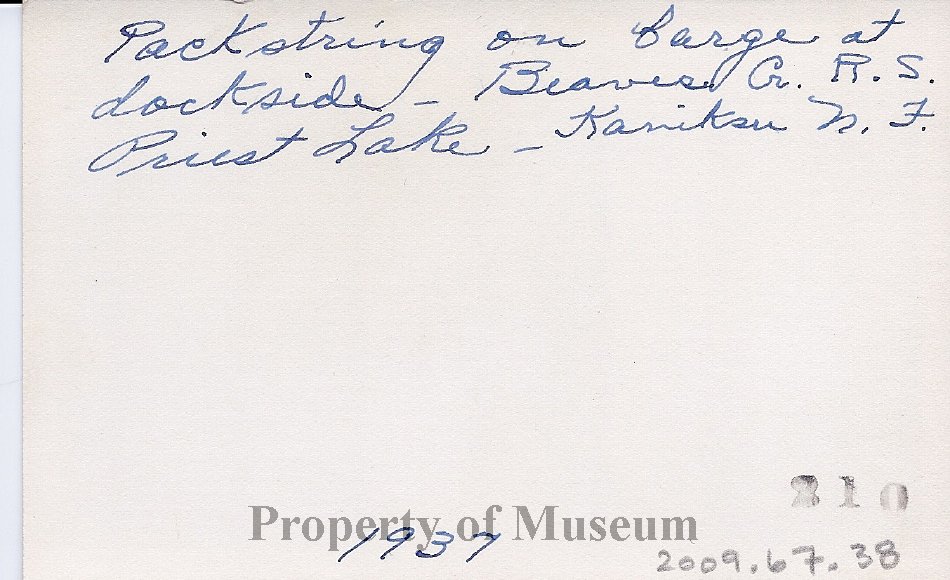 Packstring on barge at
dockside - Beaver Cr. R. S.
Priest Lake - Kaniksu N. F.
210
Property of Museum
1937
2009.67.38